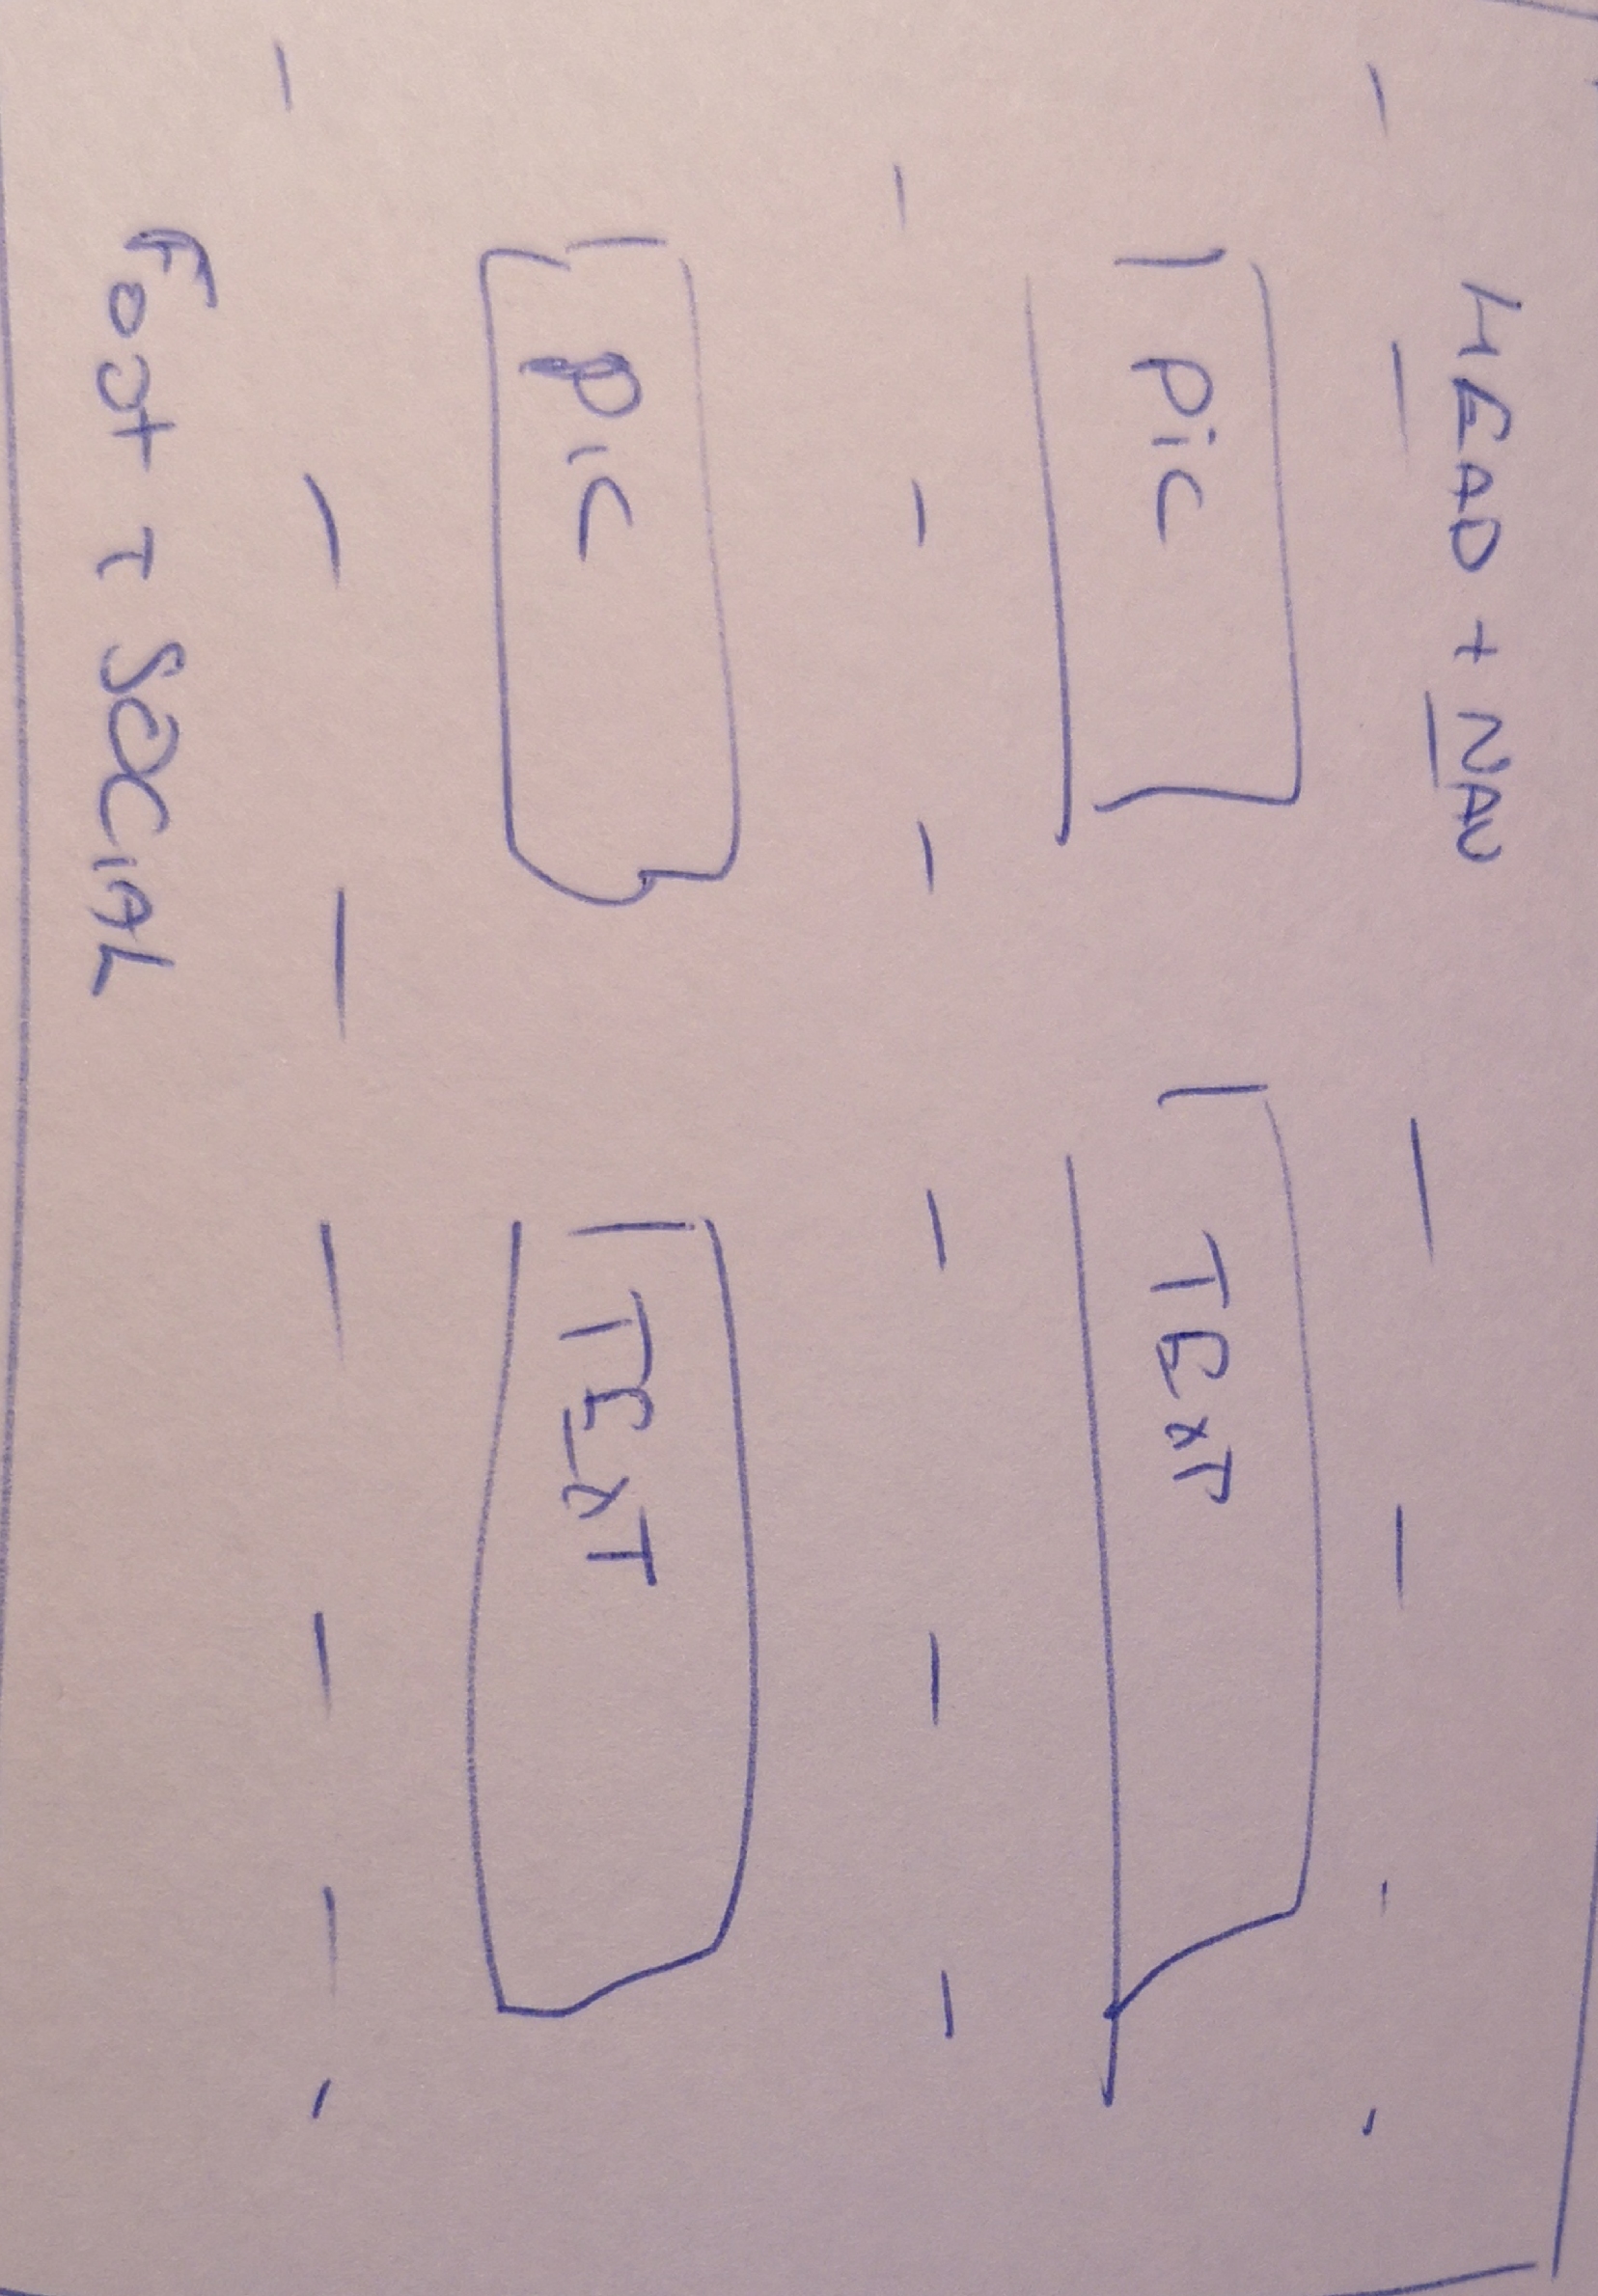 HEAD + NAV
Pic TEXT
PIC TEXT
Foot + SOCIAL